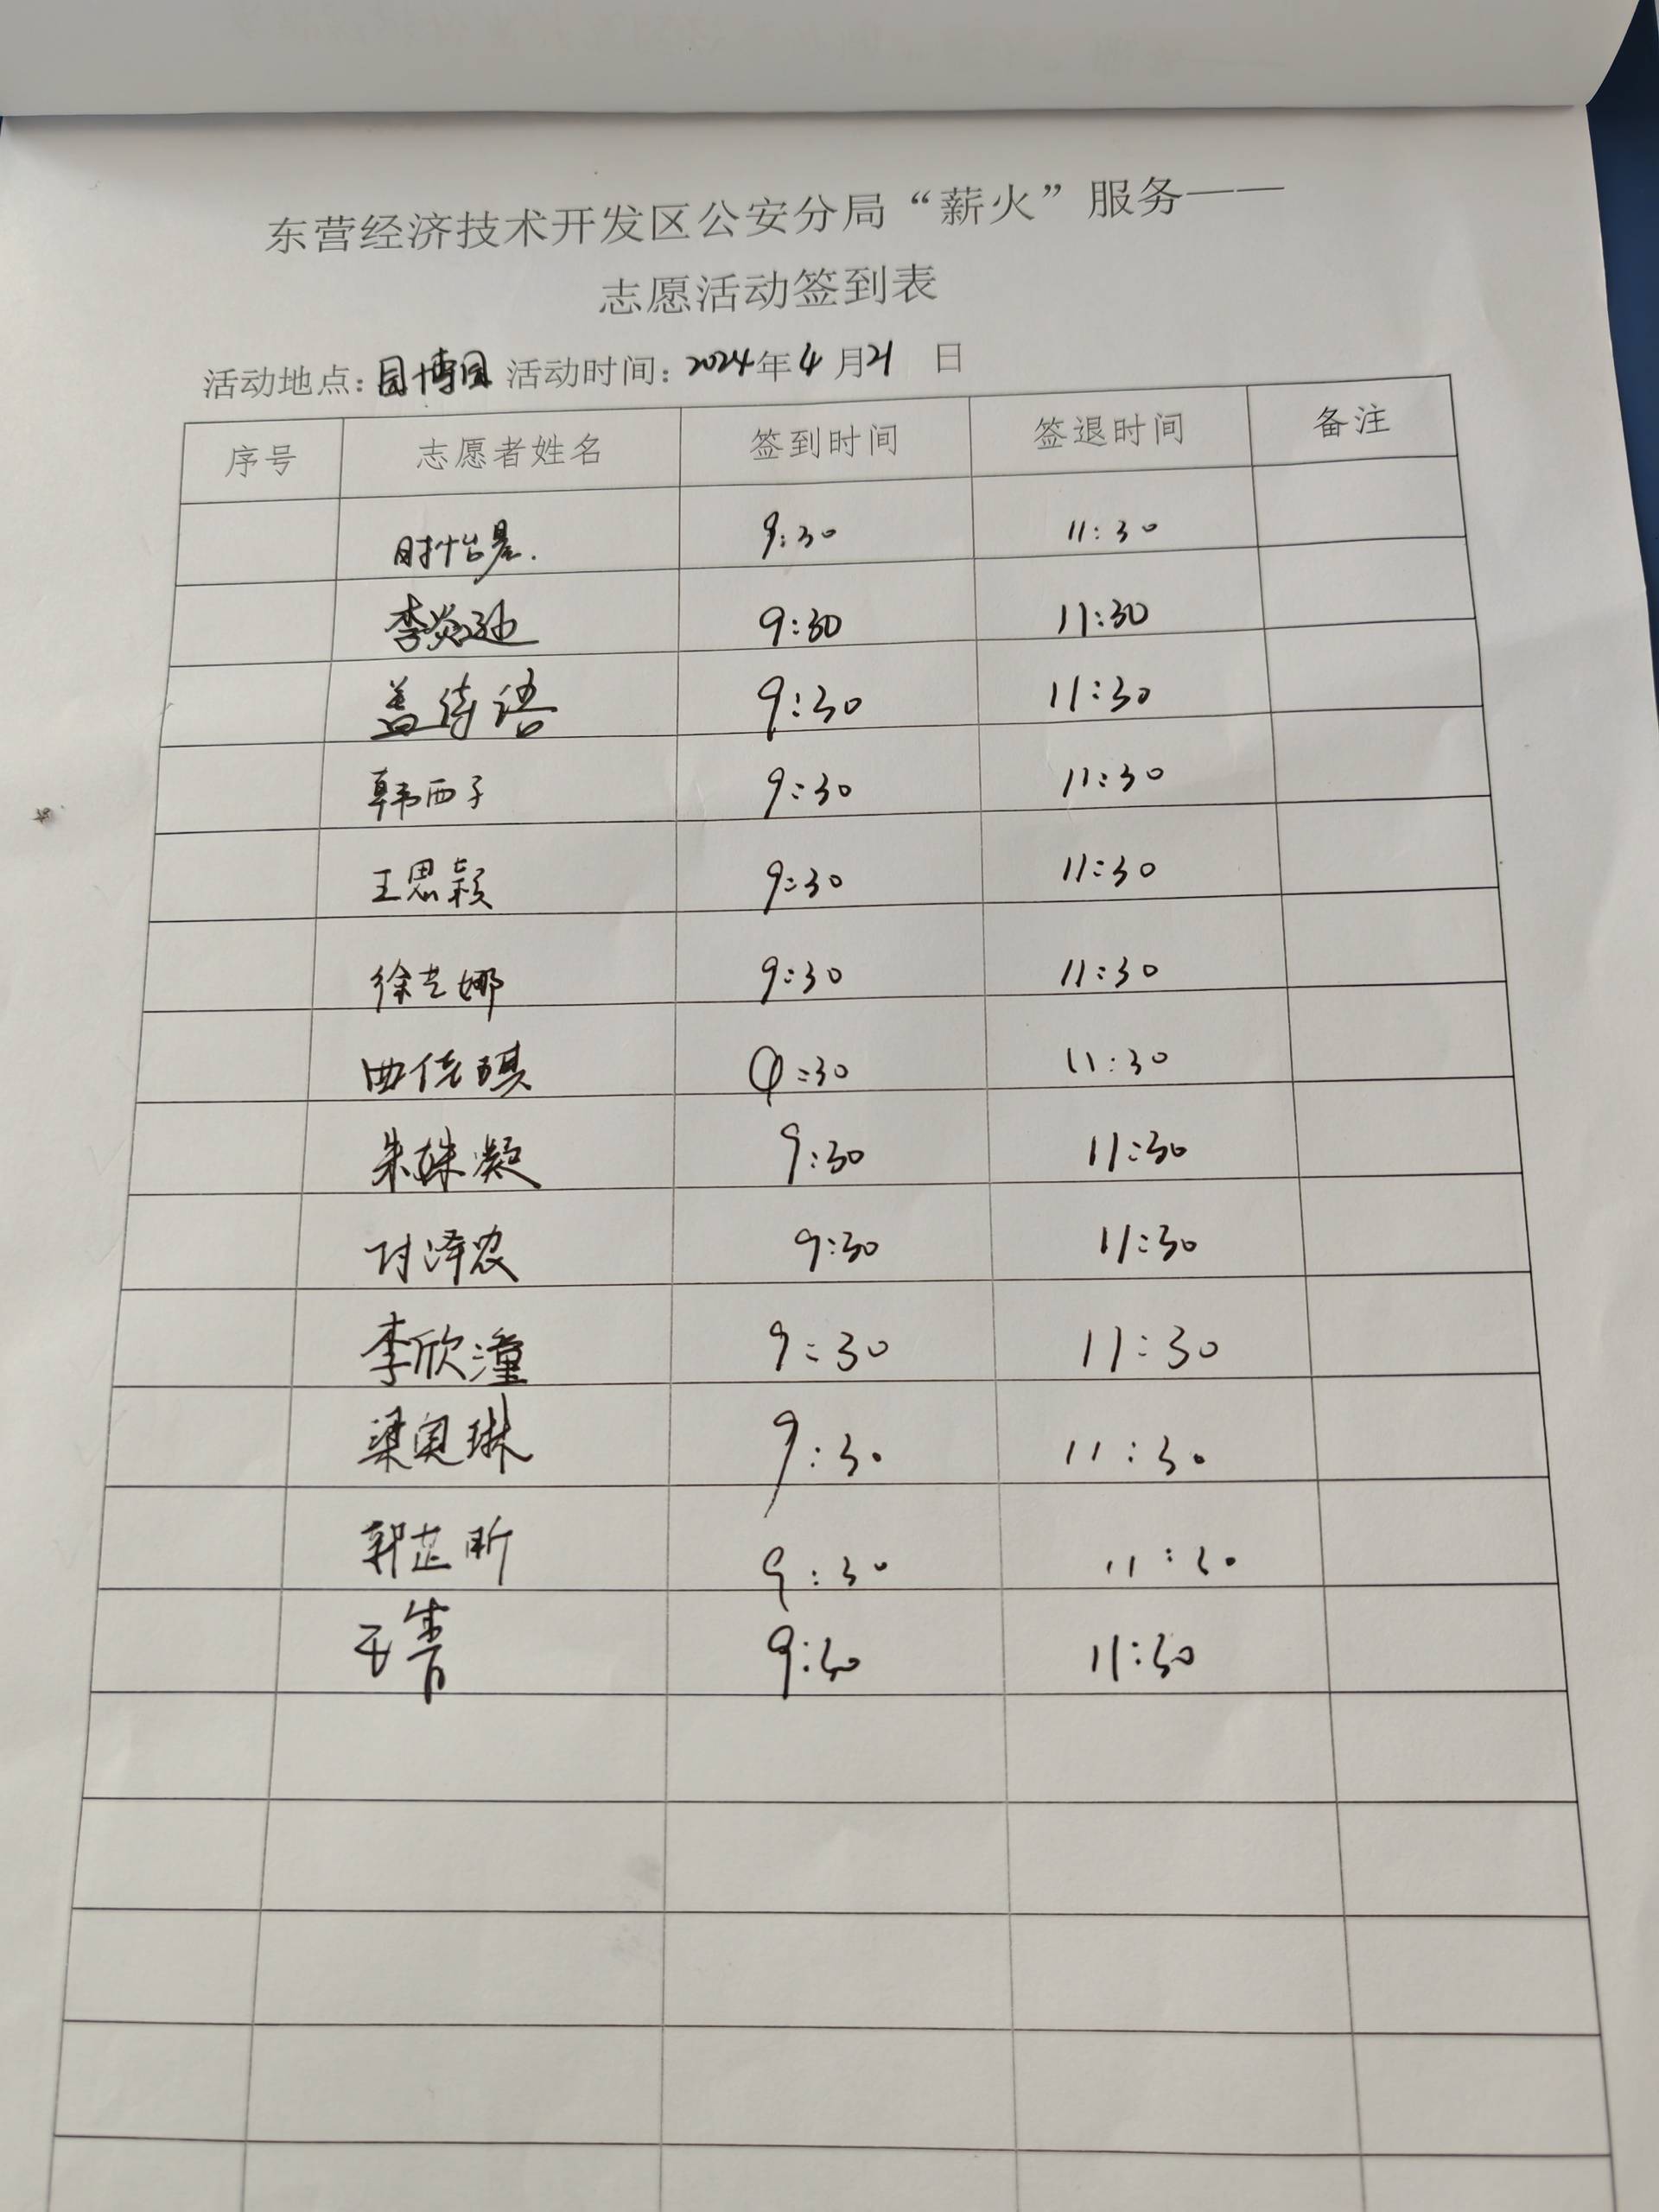 东营经济技术开发区公安分局“薪火”服务——
志愿活动签到表
活动地点：园博园 活动时间：2024年4月21日
序号 志愿者姓名 签到时间 签退时间 备注
时怡 9:30 11:30
李炎 9:30 11:30
盖诗语 9:30 11:30
韩西子 9:30 11:30
王思颖 9:30 11:30
徐艺娜 9:30 11:30
曲倩琪 9:30 11:30
朱姝凝 9:30 11:30
付泽农 9:30 11:30
李欣潼 9:30 11:30
梁奥琳 9:30 11:30
郭芷昕 9:30 11:30
9:30 11:30